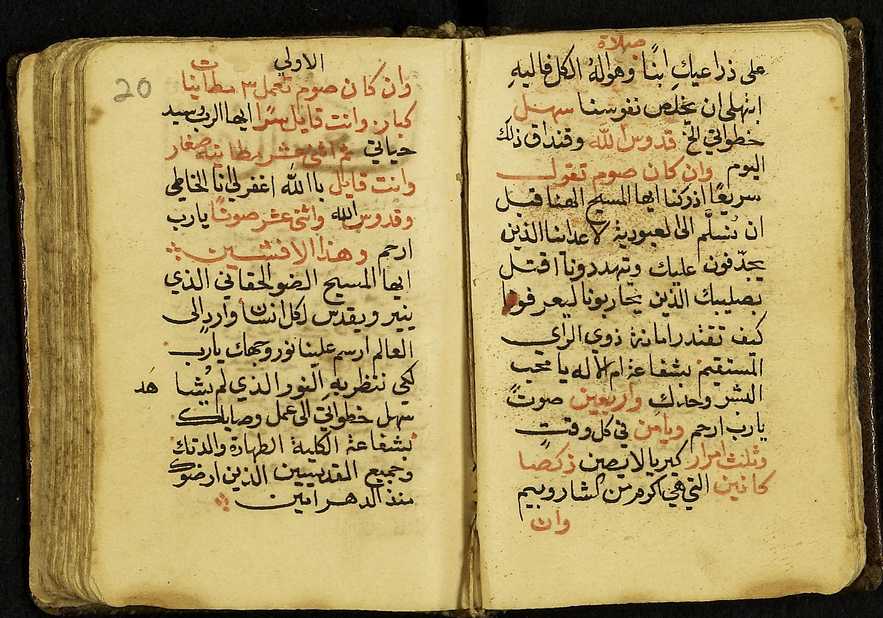 صلاة
على ذراعيك ابنًا وهو اله الكل فاليه
ابتهلي ان يخلص نفوسنا سهل
خطواتي الخ قدوس الله وقنداق ذلك
اليوم وان كان صوم تقول
سريعًا ادركنا ايها المسيح الهنا قبل
ان نُسلَّم الى العبودية لاعداينا الذين
يجدّفون عليك ويتهددونا اقتل
بصليبك الذين يحاربونا ليعرفوا
كيف تقتدر امانة ذوي الراي
المستقيم بشفاعة ام الاله يا محب
البشر وحدك واربعين صوتً
يارب ارحم ويا من في كل وقتٍ
وثلث امرار كيرياليصين ذكصا
كانين التي هي اكرم من الشاروبيم
وان
الاولي
20
وان كان صوم تعمل ٣ مطانيات
كبار وانت قايل سرًا ايها الرب وسيد
حياتي ثم اثنى عشر مطانية صغار
وانت قايل يا الله اغفر لي انا الخاطي
وقدوس الله واثنى عشر صوتًا يارب
ارحم وهذا الافشين
ايها المسيح الضو الحقاني الذي
ينير ويقدس لكل انسان واردٍ الى
العالم ارسم علينا نور وجهك يارب
لكي ننظر به النور الذي لم يُشا هَد
سهل خطواتي الى عمل وصاياك
بشفاعة الكلية الطهارة والدتك
وجميع القديسين الذين ارضوك
منذ الدهر امين